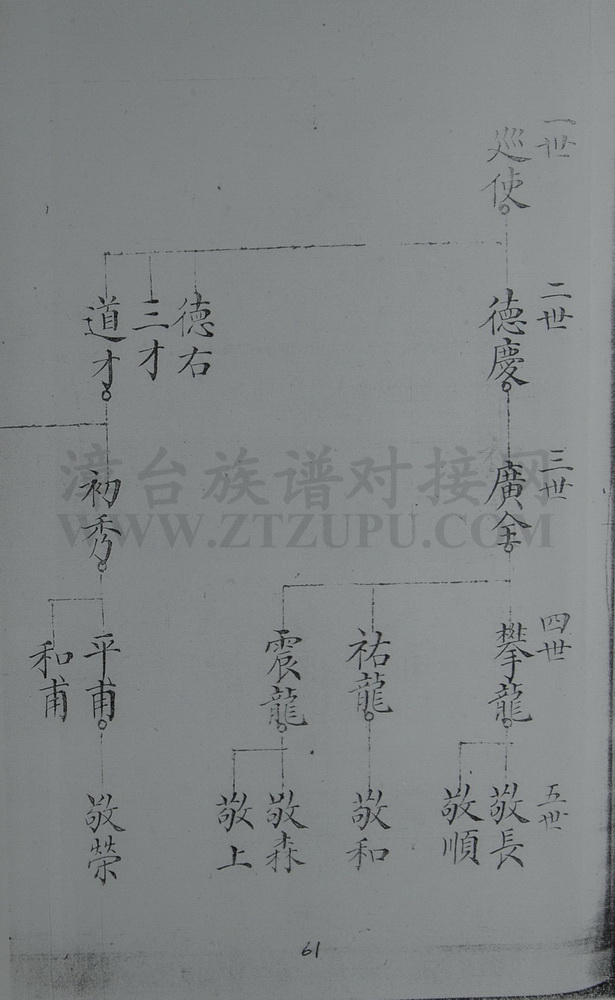 一世
巡使
二世
德慶
德右
三才
道才
三世
廣全
初秀
四世
攀龍
祐龍
震龍
平甫
和甫
五世
敬長
敬順
敬和
敬森
敬上
敬榮
漳台族谱对接网
WWW.ZTZUPU.COM
61